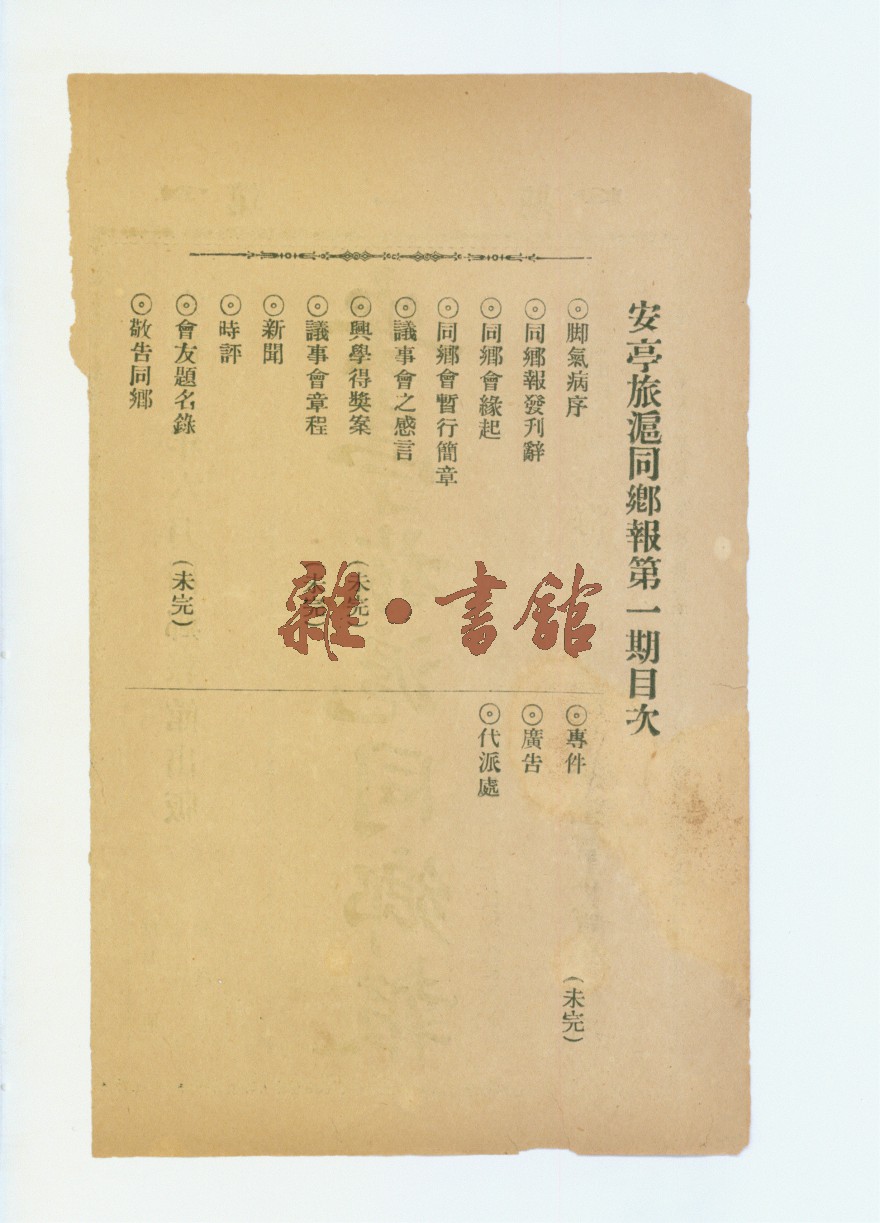 安亭旅滬同鄉報第一期目次
⊙脚氣病序
⊙同鄉報發刊辭
⊙同鄉會緣起
⊙同鄉會暫行簡章
⊙議事會之感言
⊙興學得獎案 (未完)
⊙議事會章程 (未完)
⊙新聞
⊙時評
⊙會友題名錄 (未完)
⊙敬告同鄉
⊙專件 (未完)
⊙廣告
⊙代派處
雜·書館